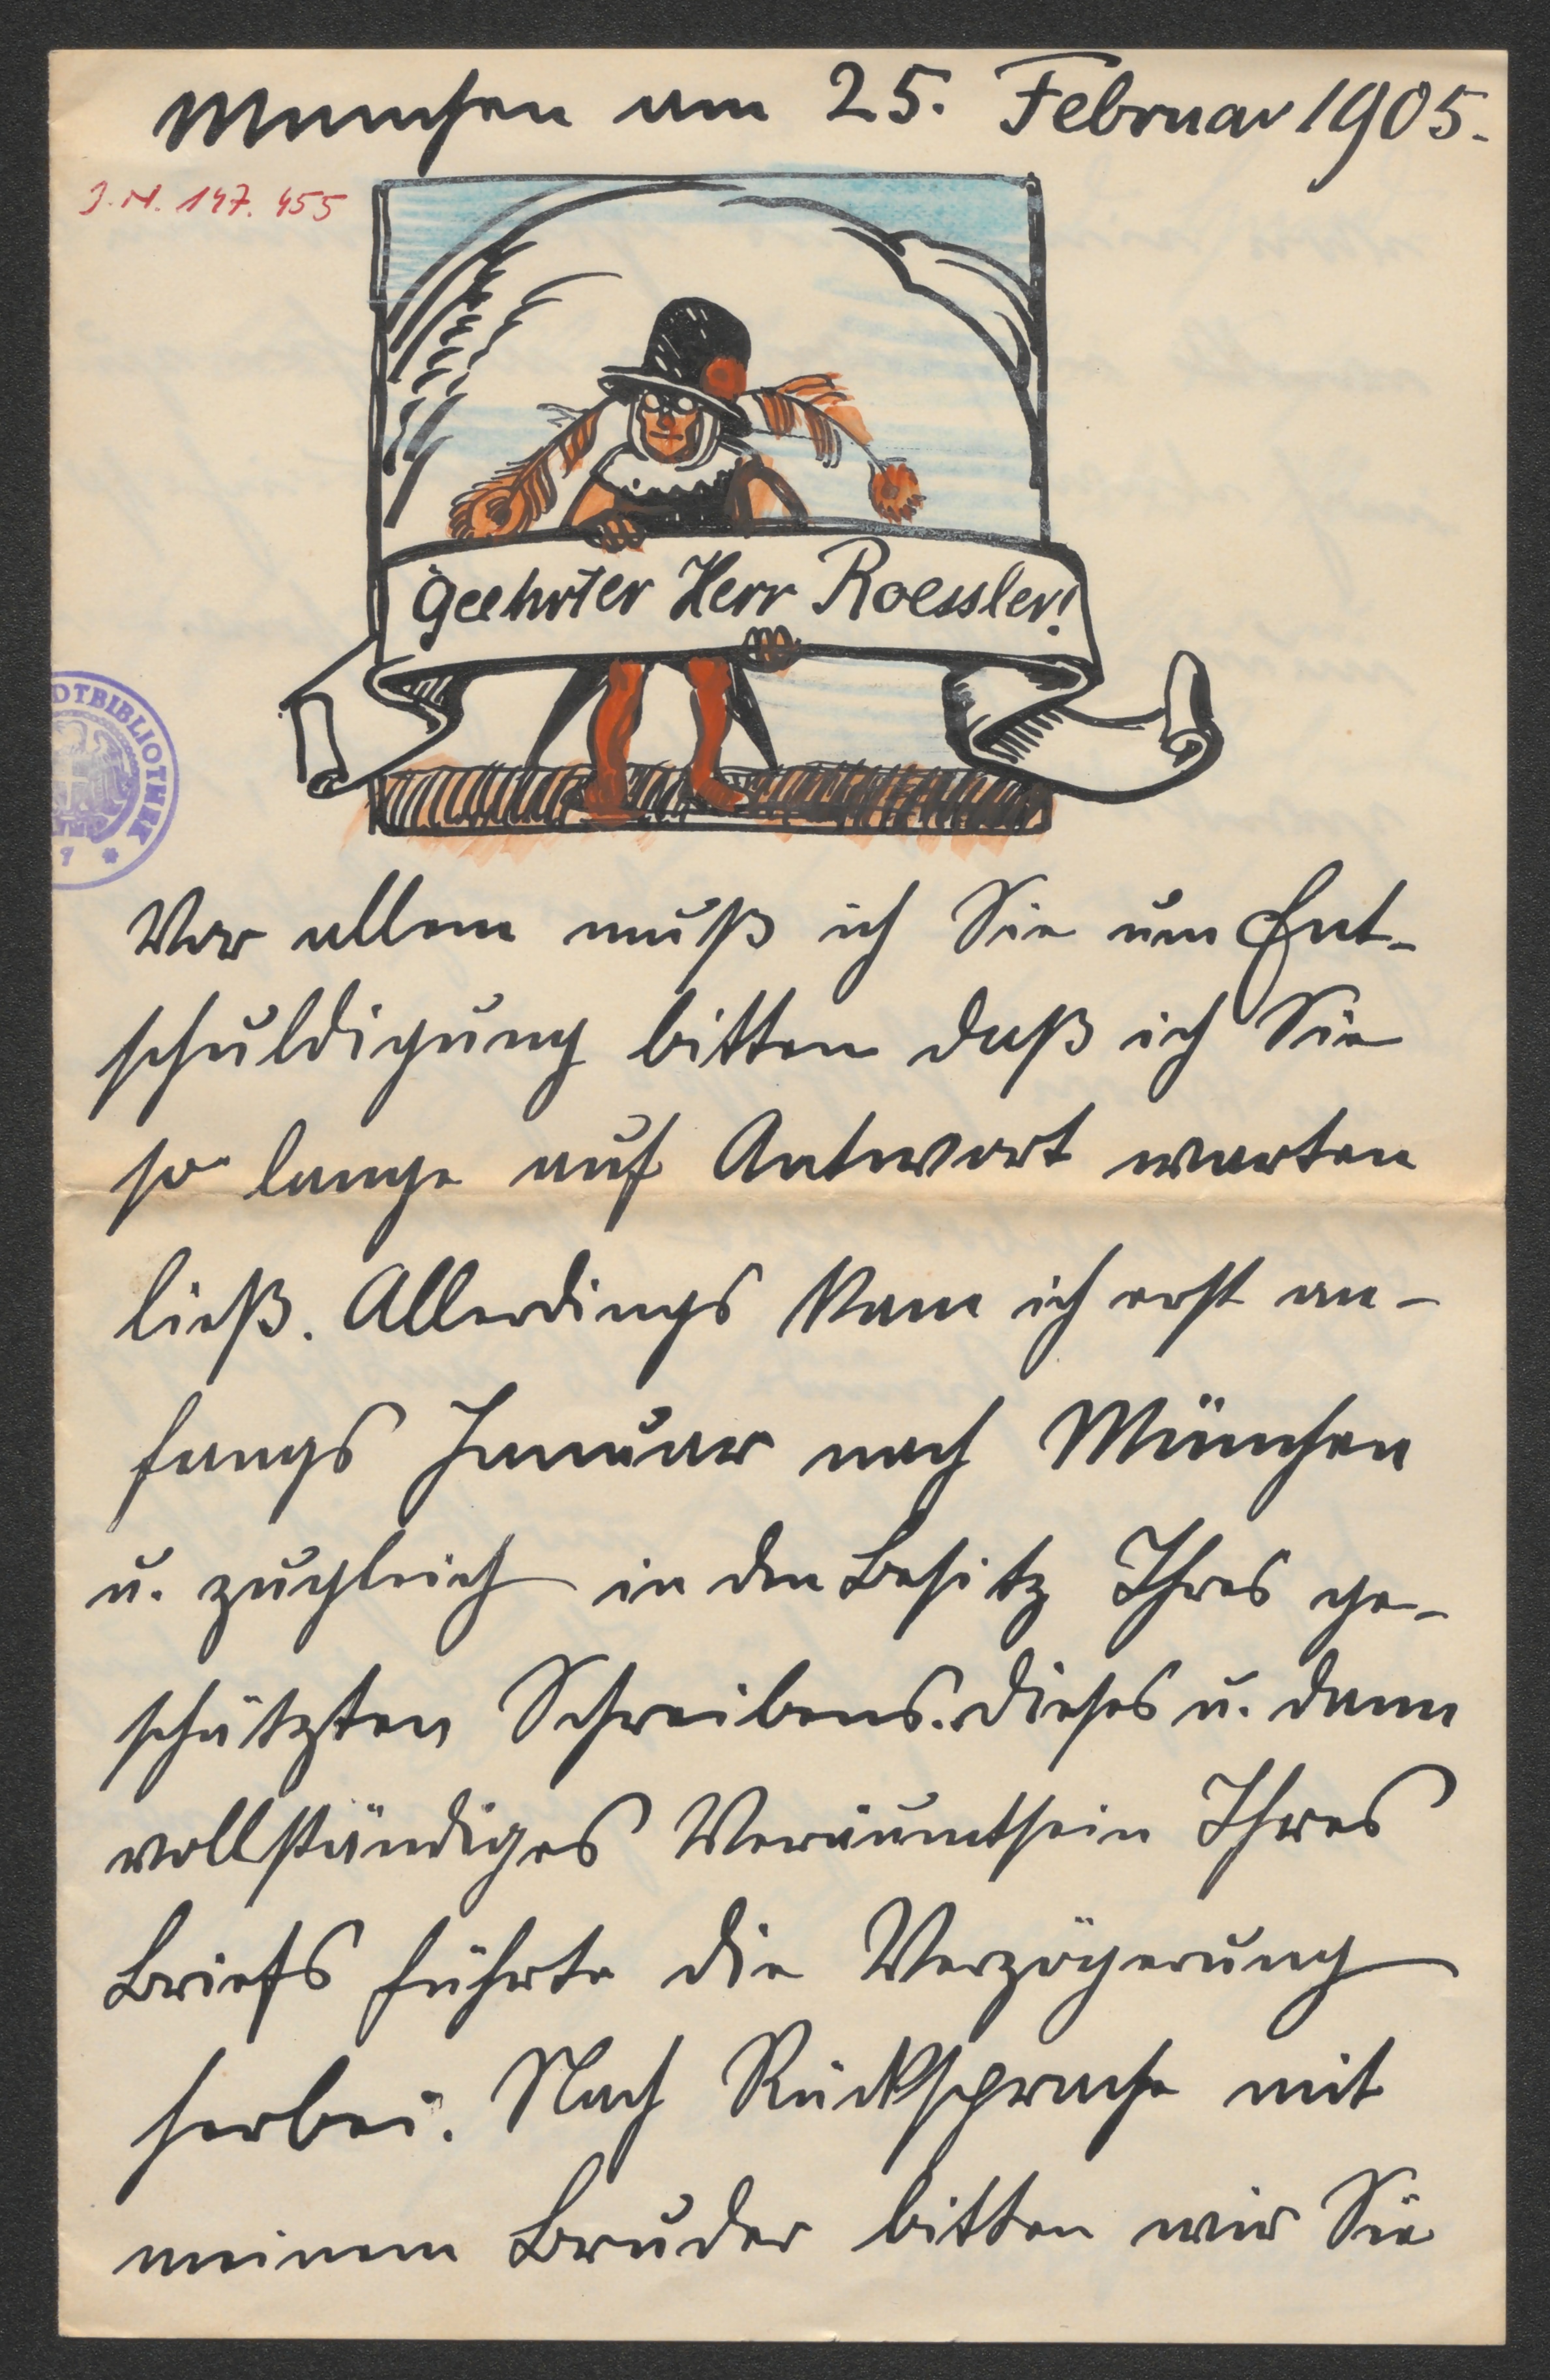 München am 25. Februar 1905.
J. N. 147.455
Geehrter Herr Roessler!
DTBIBLIOTHEK
Vor allem muß ich Sie um Ent-
schuldigung bitten daß ich Sie
so lange auf Antwort warten
ließ. Allerdings kam ich erst an-
fangs Januar nach München
u. zugleich in den Besitz Ihres ge-
schätzten Schreibens. Dieses u. dann
vollständiges Veräumtsein Ihres
Briefs führte die Verzögerung
herbei. Nach Rücksprache mit
meinem Bruder bitten wir Sie